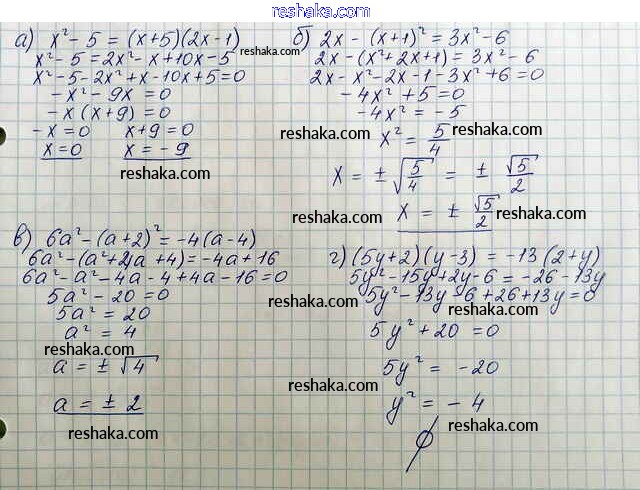 reshaka.com
а) x² - 5 = (x+5)(2x-1)
x² - 5 = 2x² - x + 10x - 5
x² - 5 - 2x² + x - 10x + 5 = 0
- x² - 9x = 0
- x (x + 9) = 0
- x = 0 x + 9 = 0
x = 0 x = - 9
reshaka.com
reshaka.com
б) 2x - (x+1)² = 3x² - 6
2x - (x² + 2x + 1) = 3x² - 6
2x - x² - 2x - 1 - 3x² + 6 = 0
- 4x² + 5 = 0
- 4x² = - 5
x² = 5/4
x = ± √5/4 = ± √5/2
x = ± √5/2
reshaka.com
reshaka.com
reshaka.com
в) 6a² - (a+2)² = -4(a-4)
6a² - (a² + 2)a + 4) = -4a + 16
6a² - a² - 4a - 4 + 4a - 16 = 0
5a² - 20 = 0
5a² = 20
a² = 4
reshaka.com
a = ± √4
a = ± 2
reshaka.com
г) (5y+2)(y-3) = -13(2+y)
5y² - 15y + 2y - 6 = -26 - 13y
5y² - 13y - 6 + 26 + 13y = 0
5y² + 20 = 0
5y² = - 20
y² = - 4
∅
reshaka.com
reshaka.com
reshaka.com
reshaka.com
reshaka.com